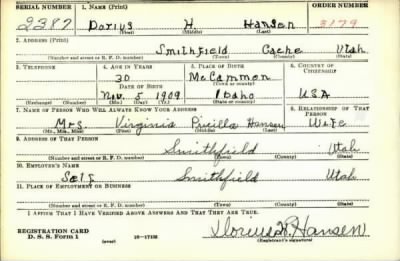 SERIAL NUMBER 1. NAME (Print) ORDER NUMBER
2387 Dorius H. Hansen 3179
(First) (Middle) (Last)
2. ADDRESS (Print)
Smithfield Cache Utah
(Number and street or R. F. D. number) (Town) (County) (State)
3. TELEPHONE 4. AGE IN YEARS 5. PLACE OF BIRTH 6. COUNTRY OF CITIZENSHIP
30 McCammon
DATE OF BIRTH (Town or county)
Nov. 5 1909 Idaho USA
(Exchange) (Number) (Mo.) (Day) (Yr.) (State or country)
7. NAME OF PERSON WHO WILL ALWAYS KNOW YOUR ADDRESS 8. RELATIONSHIP OF THAT PERSON
Mrs. Virginia Hansen Wife
(Mr., Mrs., Miss) (First) (Middle) (Last)
9. ADDRESS OF THAT PERSON
Smithfield Utah
(Number and street or R. F. D. number) (Town) (County) (State)
10. EMPLOYER'S NAME
Self Smithfield Utah
11. PLACE OF EMPLOYMENT OR BUSINESS
(Number and street or R. F. D. number) (Town) (County) (State)
I AFFIRM THAT I HAVE VERIFIED ABOVE ANSWERS AND THAT THEY ARE TRUE.
REGISTRATION CARD
D. S. S. Form 1 (over) 16-17125 Dorius H. Hansen
(Registrant's signature)